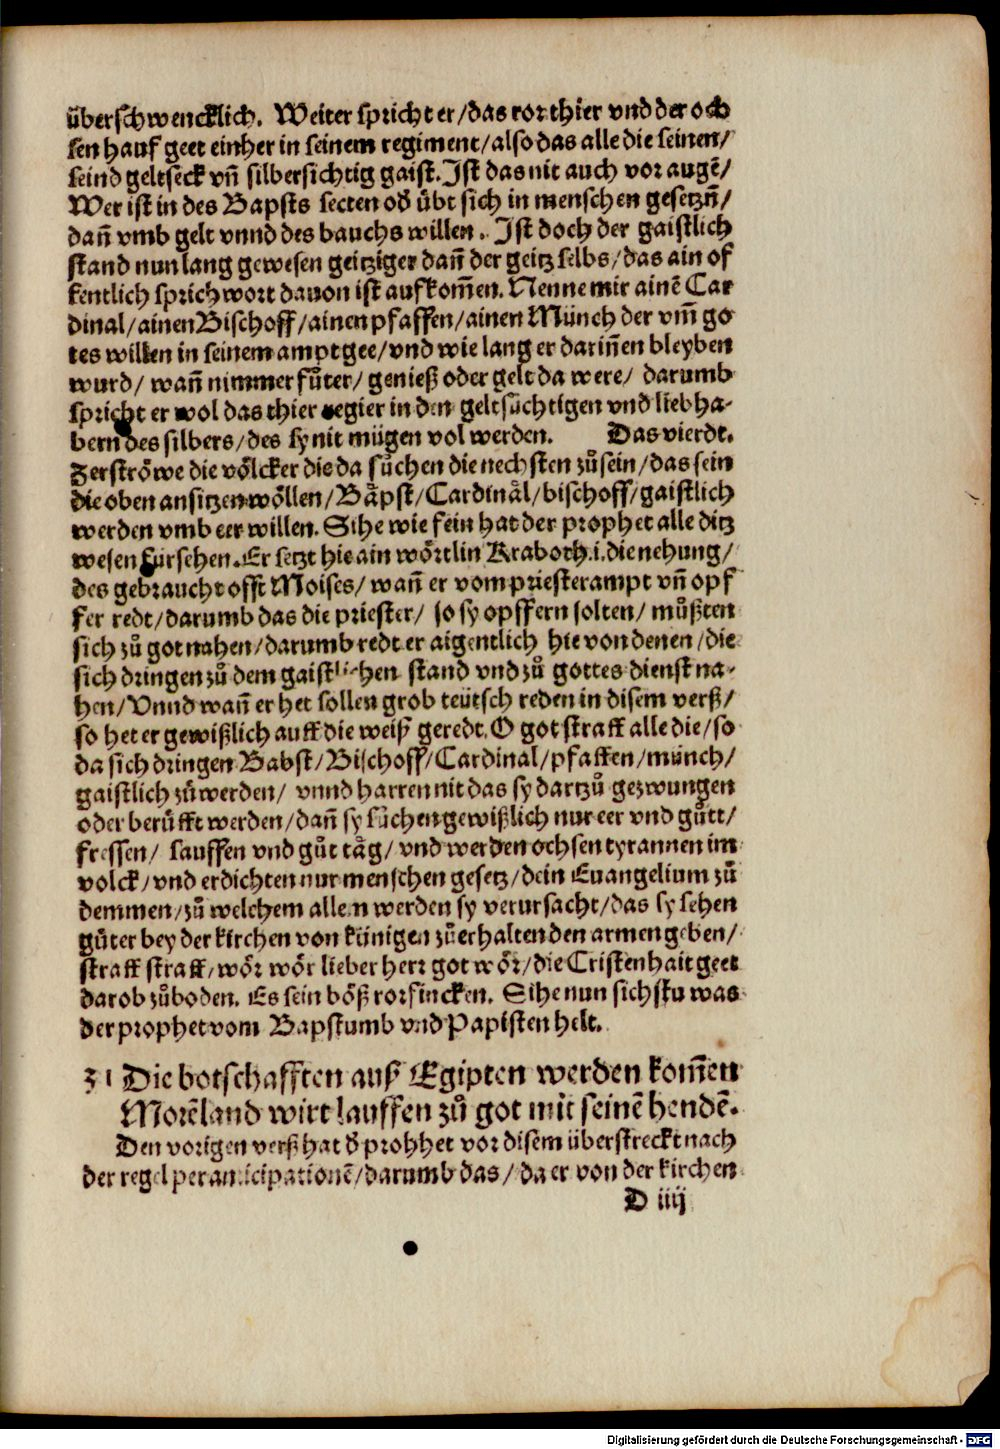 überschwencklich. Weiter spricht er/das ror thier vnd der och
sen hauf geet einher in seinem regiment/also das alle die seinen/
seind geltseck vñ silbersichtig gaist. Ist das nit auch vor augẽ/
Wer ist in des Bapsts secten oď übt sich in menschen gesetzñ/
dañ vmb gelt vnnd des bauchs willen. Ist doch der gaistlich
stand nun lang gewesen geitziger dañ der geitz selbs/das ain of
fentlich sprichwort dauon ist aufkom̃en. Nenne mir ainẽ Car
dinal/ainen Bischoff/ainen pfaffen/ainen Münch der vm̃ go
tes willen in seinem ampt gee/vnd wie lang er dariñen bleyben
wurd/ wañ nimmer fůter/genieß oder gelt da were/ darumb
spricht er wol das thier regier in den geltsüchtigen vnd liebha-
bern des silbers/des sy nit mügen vol werden. Das vierdt.
Zerströwe die völcker die da sůchen die nechsten zů sein/das sein
die oben ansitzen wöllen/Bäpst/Cardinäl/bischoff/gaistlich
werden vmb eer willen. Sihe wie fein hat der prophet alle ditz
wesen fürsehen. Er setzt hie ain wörtlin Kraboth .i. die nehung/
des gebraucht offt Moises/ wañ er vom priesterampt vñ opf
fer redt/darumb das die priester/ so sy opffern solten/ můßten
sich zů got nahen/darumb redt er aigentlich hie von denen/die
sich dringen zů dem gaistlichen stand vnd zů gottes dienst na-
hen/Vnnd wañ er het sollen grob teütsch reden in disem verß/
so het er gewißlich auff die weiß geredt. O got straff alle die/so
da sich dringen Babst/Bischoff/Cardinal/pfaffen/münch/
gaistlich zů werden/ vnnd harren nit das sy dartzů gezwungen
oder berüfft werden/dañ sy sůchen gewißlich nur eer vnd gůtt/
fressen/ sauffen vnd gůt täg/vnd werden ochsen tyrannen im
volck/vnd erdichten nur menschen gesetz/dein Euangelium zů
demmen/zů welchem allein werden sy verursacht/das sy sehen
güter bey der kirchen von künigen zů erhalten den armen geben/
straff straff/wör wör lieber herr got wör/die Cristenhait geet
darob zů boden. Es sein böß rorfincken. Sihe nun sichstu was
der prophet vom Bapstumb vnd Papisten helt.
31 Die botschafften auß Egipten werden kom̃en
Morẽland wirt lauffen zů got mit seinẽ hendẽ.
Den vorigen verß hat ď prohhet vor disem überstreckt nach
der regel per anticipationẽ/darumb das/da er von der kirchen
D iiij
Digitalisierung gefördert durch die Deutsche Forschungsgemeinschaft - DFG